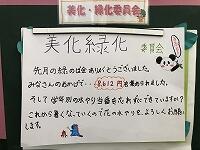 美化・緑化委員会
美化緑化
委員会
先月の緑のば金ありがとうございました。
みなさんのおかげで…8,612円も集められました。
そして学年別の水やり当番をわすれずにできていますか？
これから暑くなっていくので花の水やりを、よろしくお願い
します。